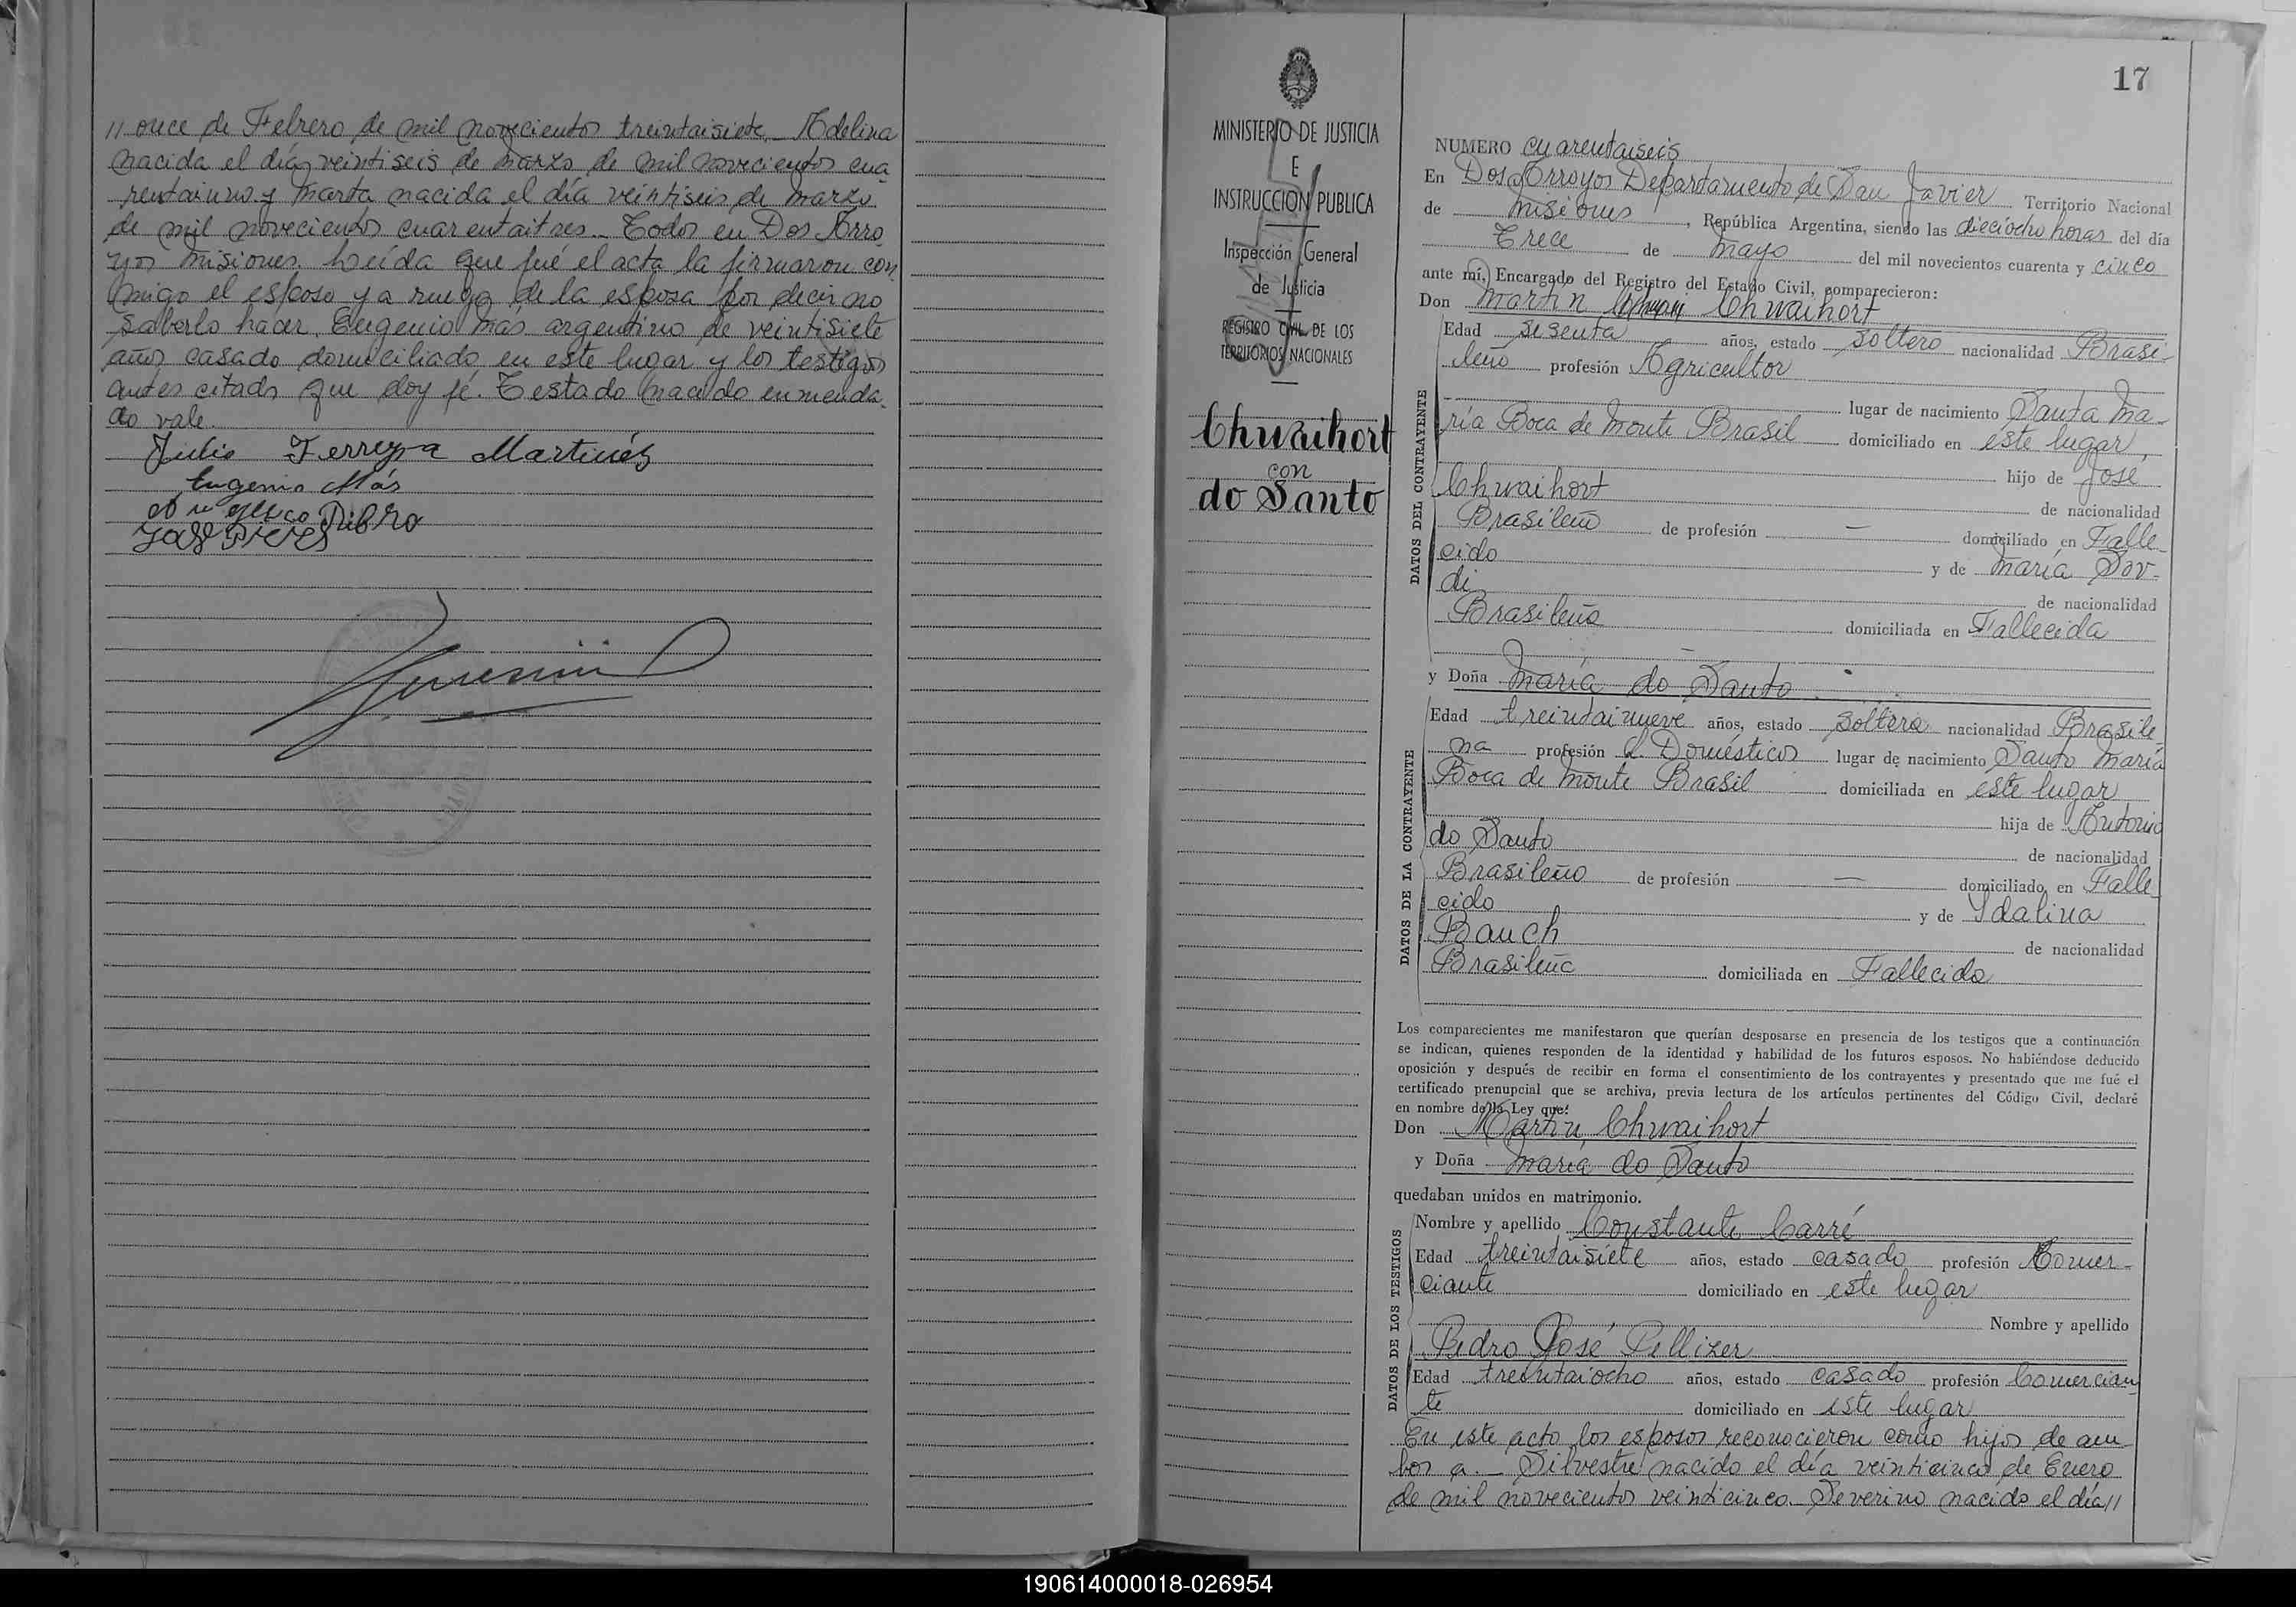 // once de Febrero de mil novecientos treintaisiete._ Adelina
nacida el día veintiseis de marzo de mil novecientos cua
rentaiuno y Marta nacida el día veintiseis de marzo
de mil novecientos cuarentaitres._ Todos en Dos Arro
yos Misiones. Leída que fué el acta la firmaron con
migo el esposo y a ruego de la esposa por decir no
saberlo hacer, Eugenio Más argentino de veintisiete
años casado domiciliado en este lugar y los testigos
antes citado que doy fé. Testado nacido enmenda
do vale.
Julio Ferreyra Martinés
Eugenio Más
17
MINISTERIO DE JUSTICIA
E
INSTRUCCION PUBLICA
Inspección General
de Justicia
REGISTRO CIVIL DE LOS
TERRITORIOS NACIONALES
Chwaihort
con
do Santo
NUMERO cuarentaiseis
En Dos Arroyos Departamento de San Javier Territorio Nacional
de Misiones, República Argentina, siendo las dieciocho horas del día
Trece de Mayo del mil novecientos cuarenta y cinco
ante mí, Encargado del Registro del Estado Civil, comparecieron:
Don Martin Chwaihort
DATOS DEL CONTRAYENTE
Edad sesenta años, estado soltero nacionalidad Brasi-
leño profesión Agricultor
lugar de nacimiento Santa Ma-
ría Boca de Monte Brasil domiciliado en este lugar,
hijo de José
Chwaihort
de nacionalidad
Brasileño de profesión — domiciliado en Falle-
cido y de María Dov-
di
de nacionalidad
Brasileña domiciliada en Fallecida
y Doña María do Santo
DATOS DE LA CONTRAYENTE
Edad treintainueve años, estado soltera nacionalidad Brasile
na profesión Q. Domésticos lugar de nacimiento Santo María
Boca de Monte Brasil domiciliada en este lugar,
hija de Antonio
do Santo
de nacionalidad
Brasileño de profesión — domiciliado en Falle
cido y de Idalina
Bauch
de nacionalidad
Brasileña domiciliada en Fallecida
Los comparecientes me manifestaron que querían desposarse en presencia de los testigos que a continuación
se indican, quienes responden de la identidad y habilidad de los futuros esposos. No habiéndose deducido
oposición y después de recibir en forma el consentimiento de los contrayentes y presentado que me fué el
certificado prenupcial que se archiva, previa lectura de los artículos pertinentes del Código Civil, declaré
en nombre de la Ley que:
Don Martin Chwaihort
y Doña María do Santo
quedaban unidos en matrimonio.
DATOS DE LOS TESTIGOS
Nombre y apellido Constante Carré
Edad treintaisiete años, estado casado profesión Comer-
ciante domiciliado en este lugar
Nombre y apellido
Pedro José Pellizer
Edad treintaiocho años, estado casado profesión Comercian
te domiciliado en este lugar
En este acto los esposos reconocieron como hijos de am
bos a._ Silvestre nacido el día veinticinco de Enero
de mil novecientos veinticinco._ Severino nacido el día //
190614000018-026954